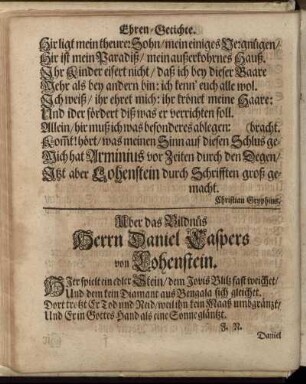 Ehren-Getichte.
Hir ligt mein theurer Sohn / mein einiges Vergnügen /
Hir ist mein Paradiß / mein außerkohrnes Hauß.
Ihr Kinder eifert nicht / daß ich bey dieser Baare
Mehr als bey andern bin: ich kenn' euch alle wol.
Ich weiß / ihr ehret mich: ihr krönet meine Haare:
Und ider fördert diß was er verrichten soll.
Allein / hir muß ich was besonderes ablegen: (bracht.
Kom̃t! hört / was meinen Sinn auf diesen Schluß ge-
Mich hat Arminius vor Zeiten durch den Degen /
Itzt aber Lohenstein durch Schrifften groß ge-
macht.
Christian Gryphius.
Uber das Bildnüs
Herrn Daniel Caspers
von Lohenstein.
Hier spielt ein edler Stein / dem Jovis Blitz fast weichet /
Und dem kein Diamant aus Bengala sich gleichet.
Dort trotzt Er Tod und Neid / weil ihn kein Maaß umbgräntzt /
Und Er in Gottes Hand als eine Sonne gläntzt.
J. N.
Daniel